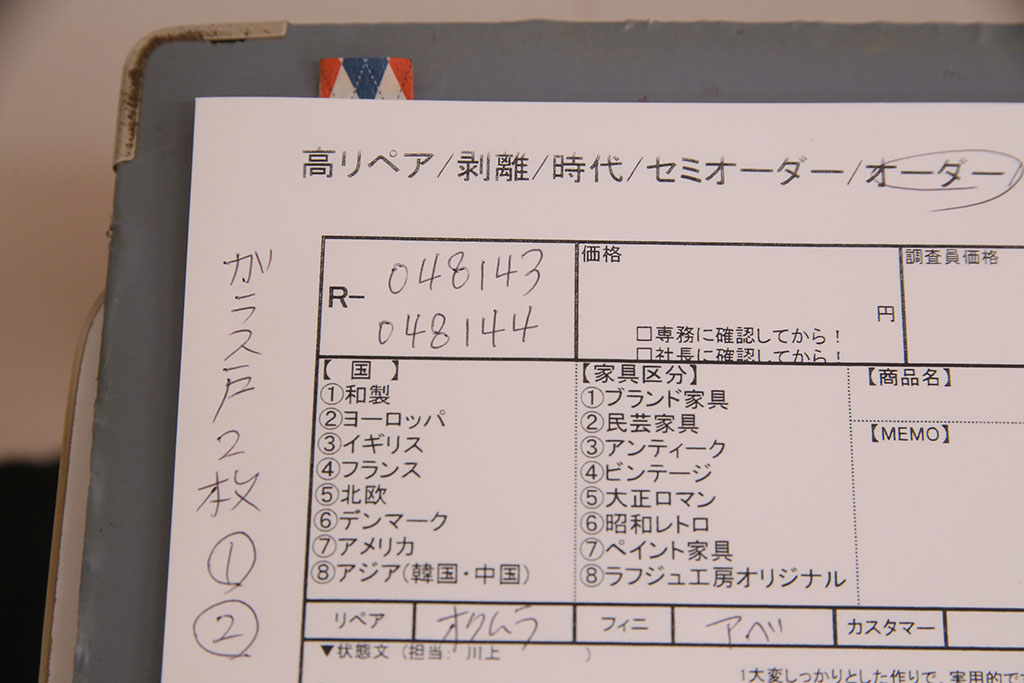 高リペア/剥離/時代/セミオーダー/オーダー
ガラス戸2枚①②
R- 048143
048144
価格
円
□専務に確認してから！
□社長に確認してから！
調査員価格
【 国 】
①和製
②ヨーロッパ
③イギリス
④フランス
⑤北欧
⑥デンマーク
⑦アメリカ
⑧アジア(韓国・中国)
【家具区分】
①ブランド家具
②民芸家具
③アンティーク
④ビンテージ
⑤大正ロマン
⑥昭和レトロ
⑦ペイント家具
⑧ラフジュ工房オリジナル
【商品名】
【MEMO】
リペア オクムラ フィニ アベ カスタマー
▼状態文 (担当: 川上 )
1大変しっかりとした作りで、実用的で